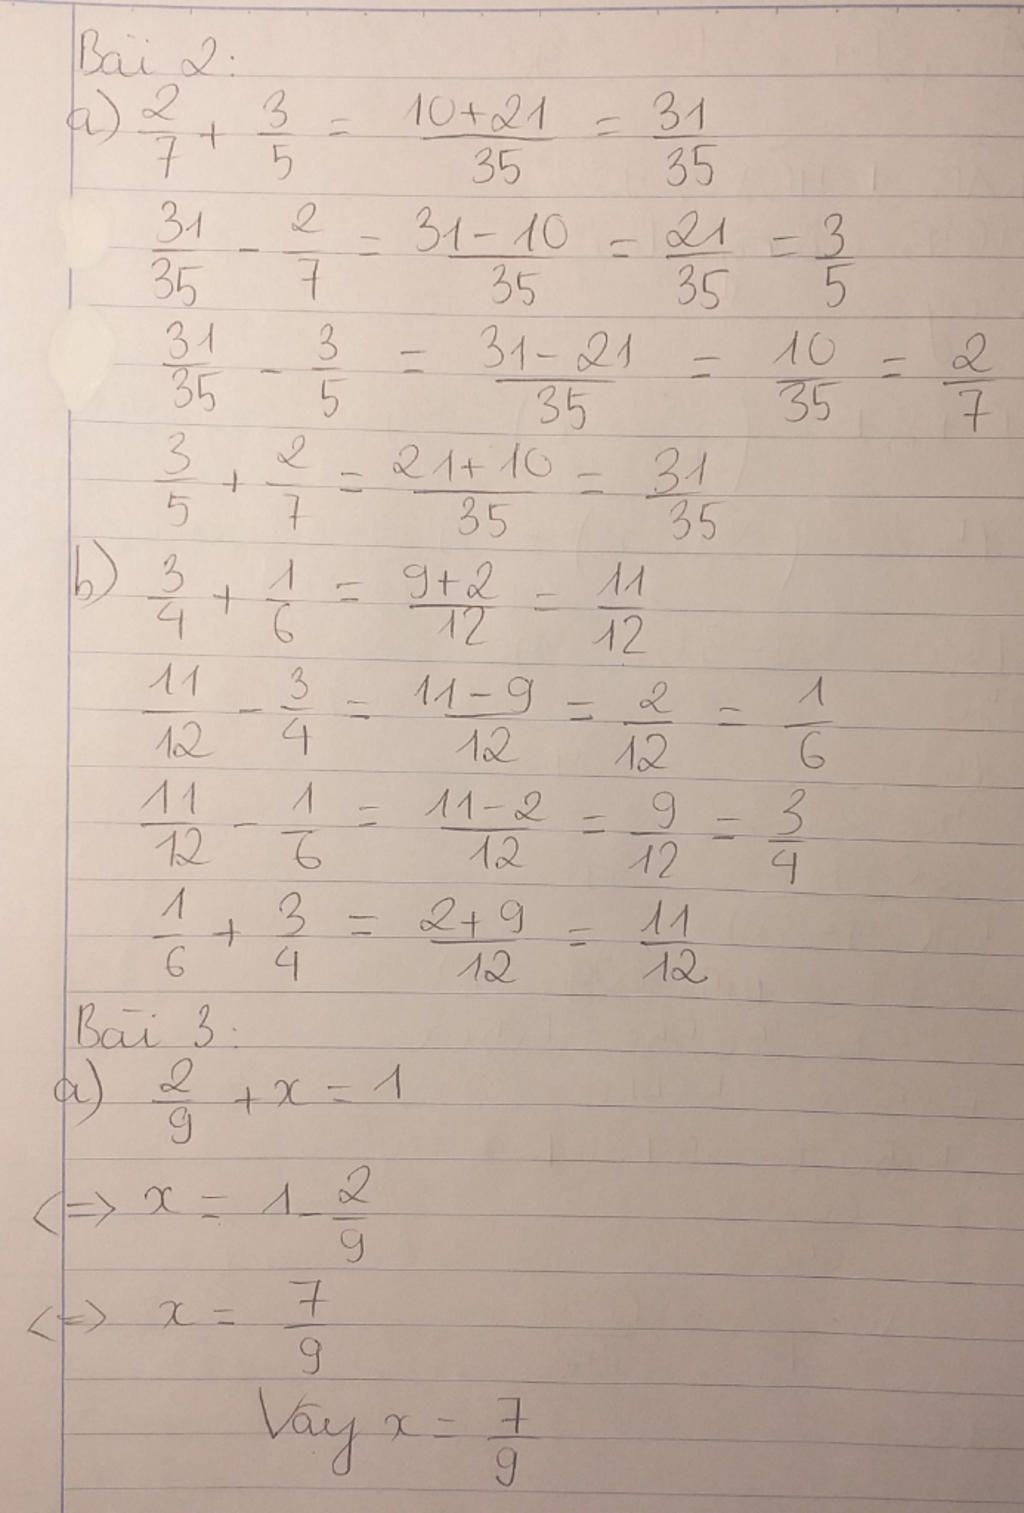 Bài 2:
a) 2/7 + 3/5 = (10+21)/35 = 31/35
31/35 - 2/7 = (31-10)/35 = 21/35 = 3/5
31/35 - 3/5 = (31-21)/35 = 10/35 = 2/7
3/5 + 2/7 = (21+10)/35 = 31/35
b) 3/4 + 1/6 = (9+2)/12 = 11/12
11/12 - 3/4 = (11-9)/12 = 2/12 = 1/6
11/12 - 1/6 = (11-2)/12 = 9/12 = 3/4
1/6 + 3/4 = (2+9)/12 = 11/12
Bài 3:
a) 2/9 + x = 1
<=> x = 1 - 2/9
<=> x = 7/9
Vậy x = 7/9